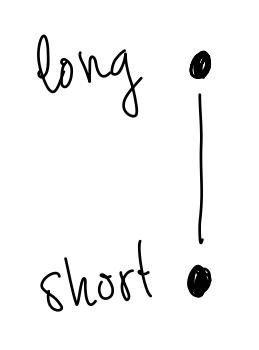 long
short